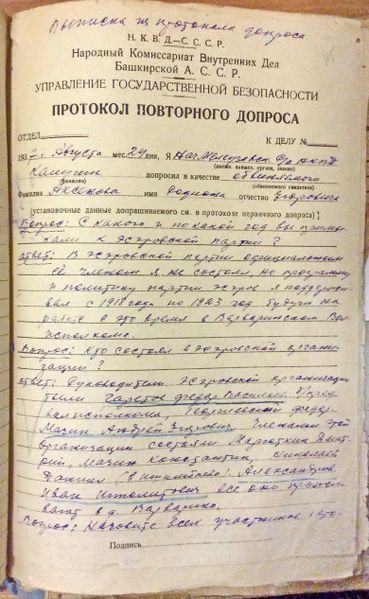 Выписка из протокола допроса
Н. К. В. Д.—С. С. С. Р.
Народный Комиссариат Внутренних Дел
Башкирской А. С. С. Р.
УПРАВЛЕНИЕ ГОСУДАРСТВЕННОЙ БЕЗОПАСНОСТИ
ПРОТОКОЛ ПОВТОРНОГО ДОПРОСА
ОТДЕЛ К ДЕЛУ №
193 7 г. Августа мес. 24 дня, Я
(должн. наимен. органа, звание)
допросил в качестве обвиняемого
(фамилия) (обвиняемого свидетеля)
Фамилия Аксенова имя отчество Егоровича
(установочные данные допрашиваемого см. в протоколе первичного допроса)
Вопрос: С какого и по какой год вы принад-
лежали к эсэровской партии?
ответ: В эсэровской партии официальном
её членом я не состоял но программу
и политику партии эсеров я поддержи-
вал с 1918 года по 1923 год будучи на
работе в это время в Варваринском Вол
исполкоме.
Вопрос: Кто состоял в эсэровской органи-
зации?
ответ: Руководители эсэровской организации
были Федор Васильев. предс
волисполкома, Георгиевский Федор
Мазин Андрей членами этой
организации состояли Дмит-
рий, Мазин Константин, Николаев
Даниил Александров
Иван Ипполитович все они прожи-
вают в д. Варварино.
Вопрос: Назовите всех участников
Подпись